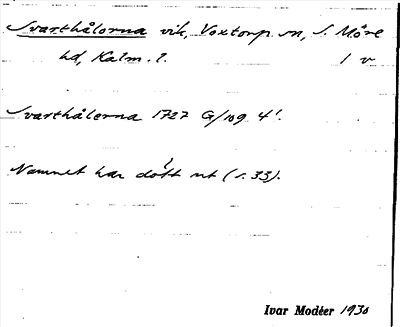 Svarthålorna vik, Voxtorp sn, S. Möre
hd, Kalm. l. 1 v
Svarthålerna 1727 G/109 4¹.
Namnet har dött ut (s. 33).
Ivar Modéer 1930